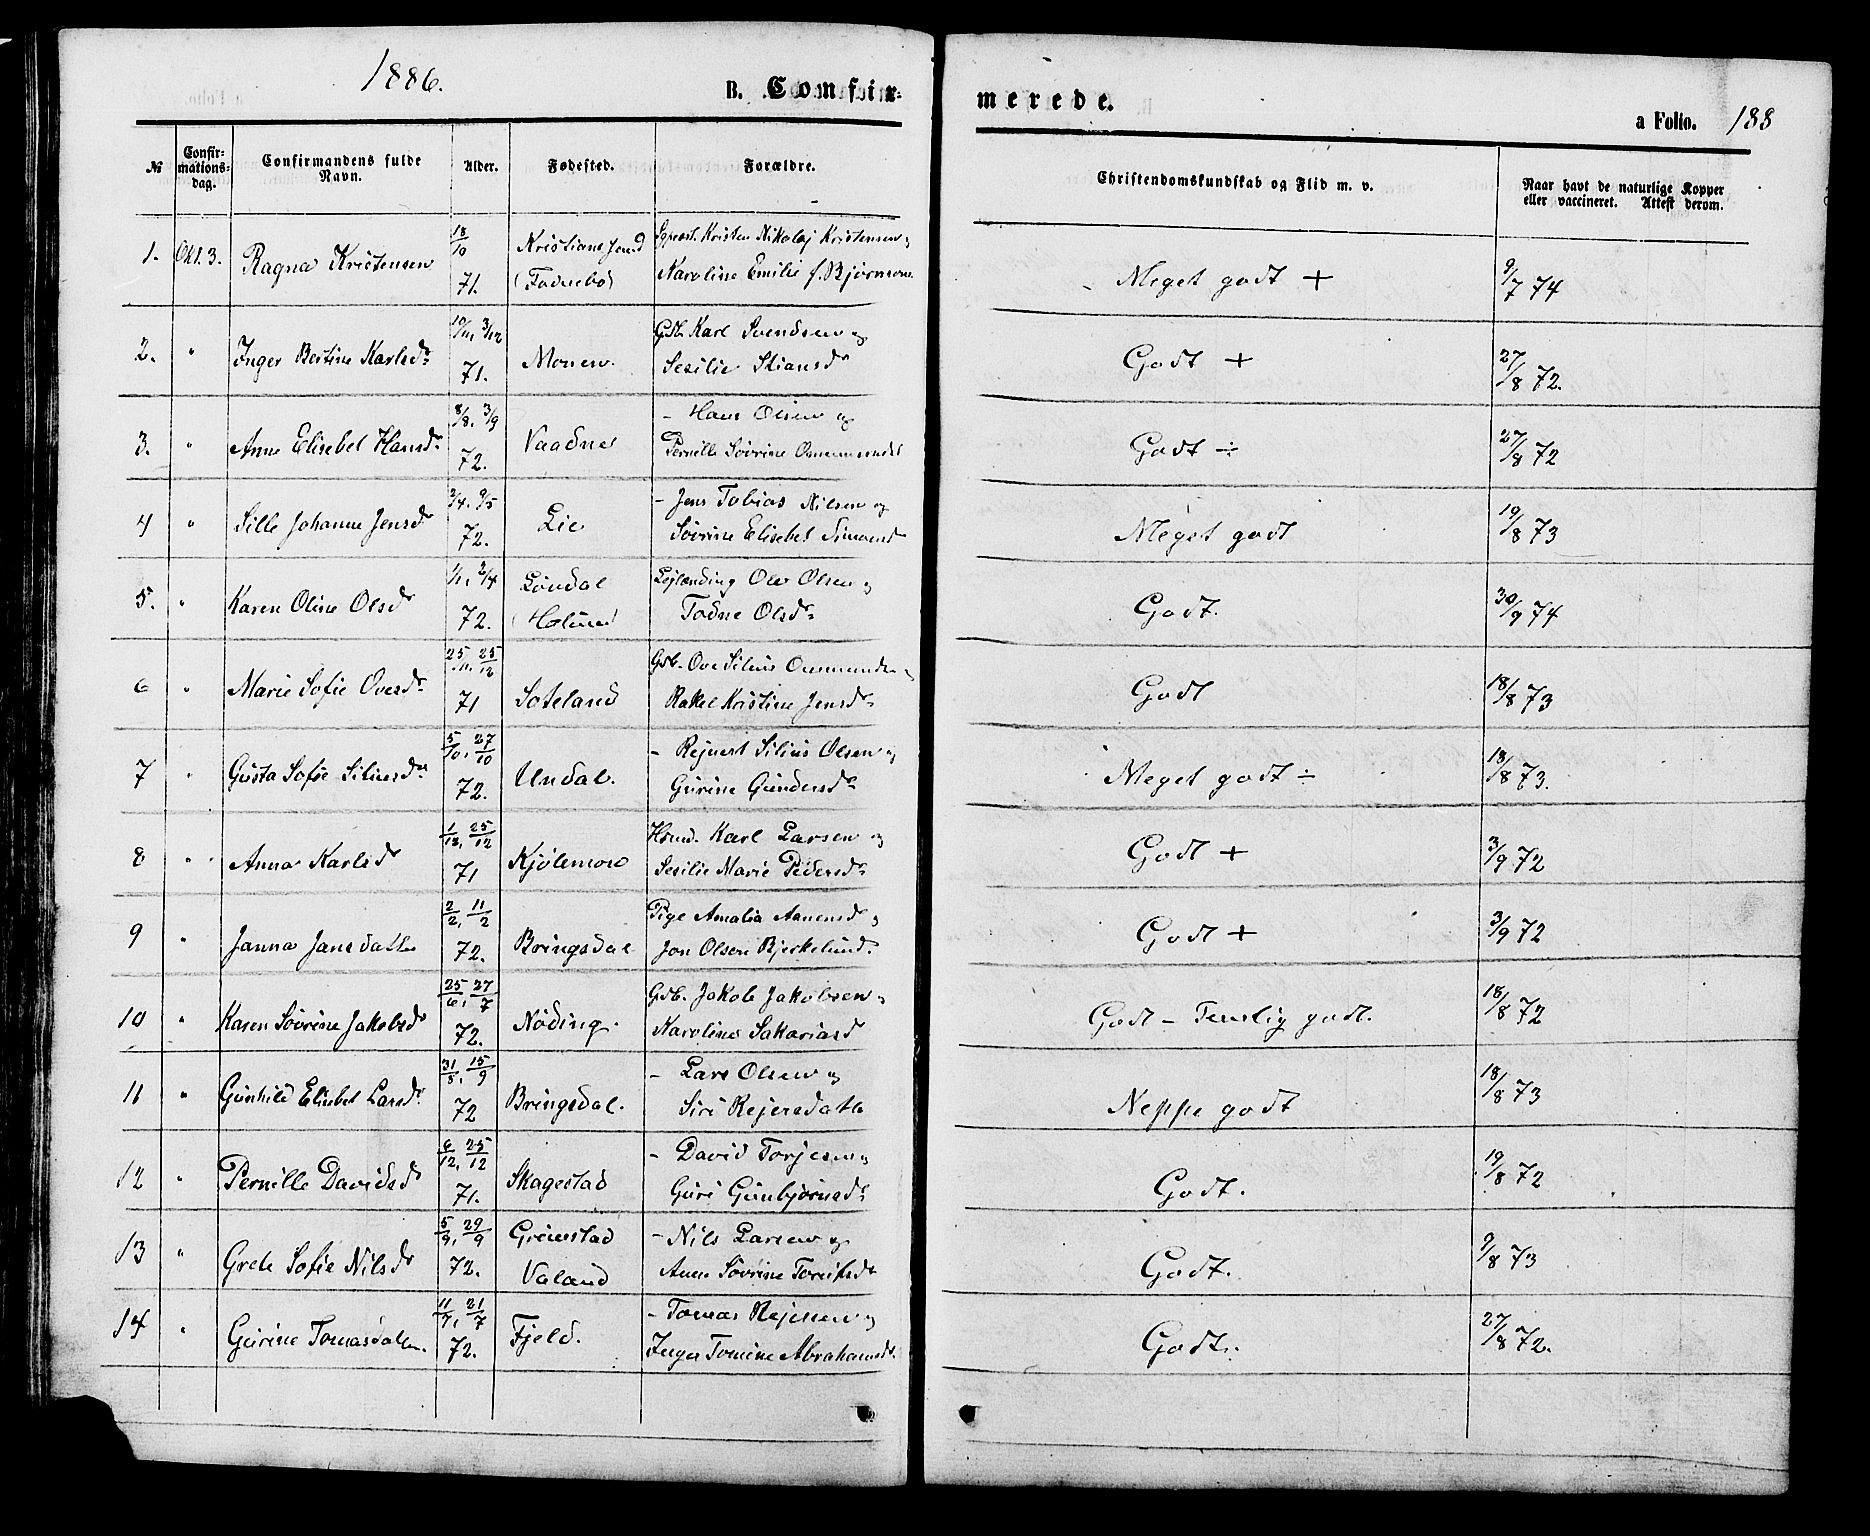 1886.
B. Confir-
merede.
a Folio. 188
№ Confir-mations-dag. Confirmandens fulde Navn. Alder. Fødested. Forældre. Christendomskundskab og Flid m. v. Naar havt de naturlige Kopper eller vaccineret. Attest derom.
1. Okt. 3. Ragna Kristensen 18/10 71. Kristiansund Karoline Emilie f. Bjørnson Meget godt + 9/7 74
Kristen Nikolaj Kristensen
2. " Inger Bertine Karlsdr 10/11, 3/12 71. Monen Gdb. Karl Svendsen og
Sesilie Stiansdr Godt + 27/8 72.
3. " Anne Elisebet Hansdr 8/8, 3/9 72. Vaadne - Hans Olsen og
Pernille Sövrine Godt ÷ 27/8 72
4 " Sille Johanne Jensdr 2/4, 9/5 72. Lie - Jens Tobias Nilsen og
Sövrine Elisebet Simonsd Meget godt 19/8 73
5. " Karen Oline Olsdr 1/1, 2/4 72. Löndal Holum Lejlending Ole Olsen og
Todne Olsdr Godt. 30/9 74
6 " Marie Sofie Ovesdr 25/11, 25/12 71 Soteland Gdb. Ove Silius
Rakel Kristine Jensdr Godt 18/8 73
7 " Gusta Sofie Siliusdr 5/10, 27/10 72. Undal. - Rejnert Silius Olsen og
Gurine Gundersdr Meget godt ÷ 18/8 73.
8 " Anna Karlsdr 1/12, 25/12 71 Kjölemo Hsmd. Karl Larsen og
Sesilie Marie Pedersdr Godt + 3/9 72
9 " Janna Jansdatter 2/2, 11/2 72. Bringsdal Pige Amalia Aanensdr og
Jon Olsen Bjerkelund. Godt + 3/9 72
10 " Karen Sövrine Jakobsdr 25/6, 27/7 72. Nöding. Gdb. Jakob Jakobsen
Karoline Sakariasd Godt - Temlig godt. 18/8 72
11 " Gunhild Elisebet Larsdr 31/8, 15/9 72 Bringsdal. - Lars Olsen og
Siri Rejersdatter Neppe godt 18/8 73
12 " Pernille Davidsdr 6/12, 25/12 71. Skagestad - David Torjesen og
Guri Gunbjörnsdr Godt. 19/8 72
13 " Grete Sofie Nilsdr 5/9, 29/9 72. Greiestad Valand - Nils Larsen og
Anne Sövrine Godt. 2/8 73
14 " Gurine Tomasdatter. 11/7, 21/7 72. Fjeld. - Tomas og
Inger Tomine Abrahamsdr. Godt. 27/8 72.